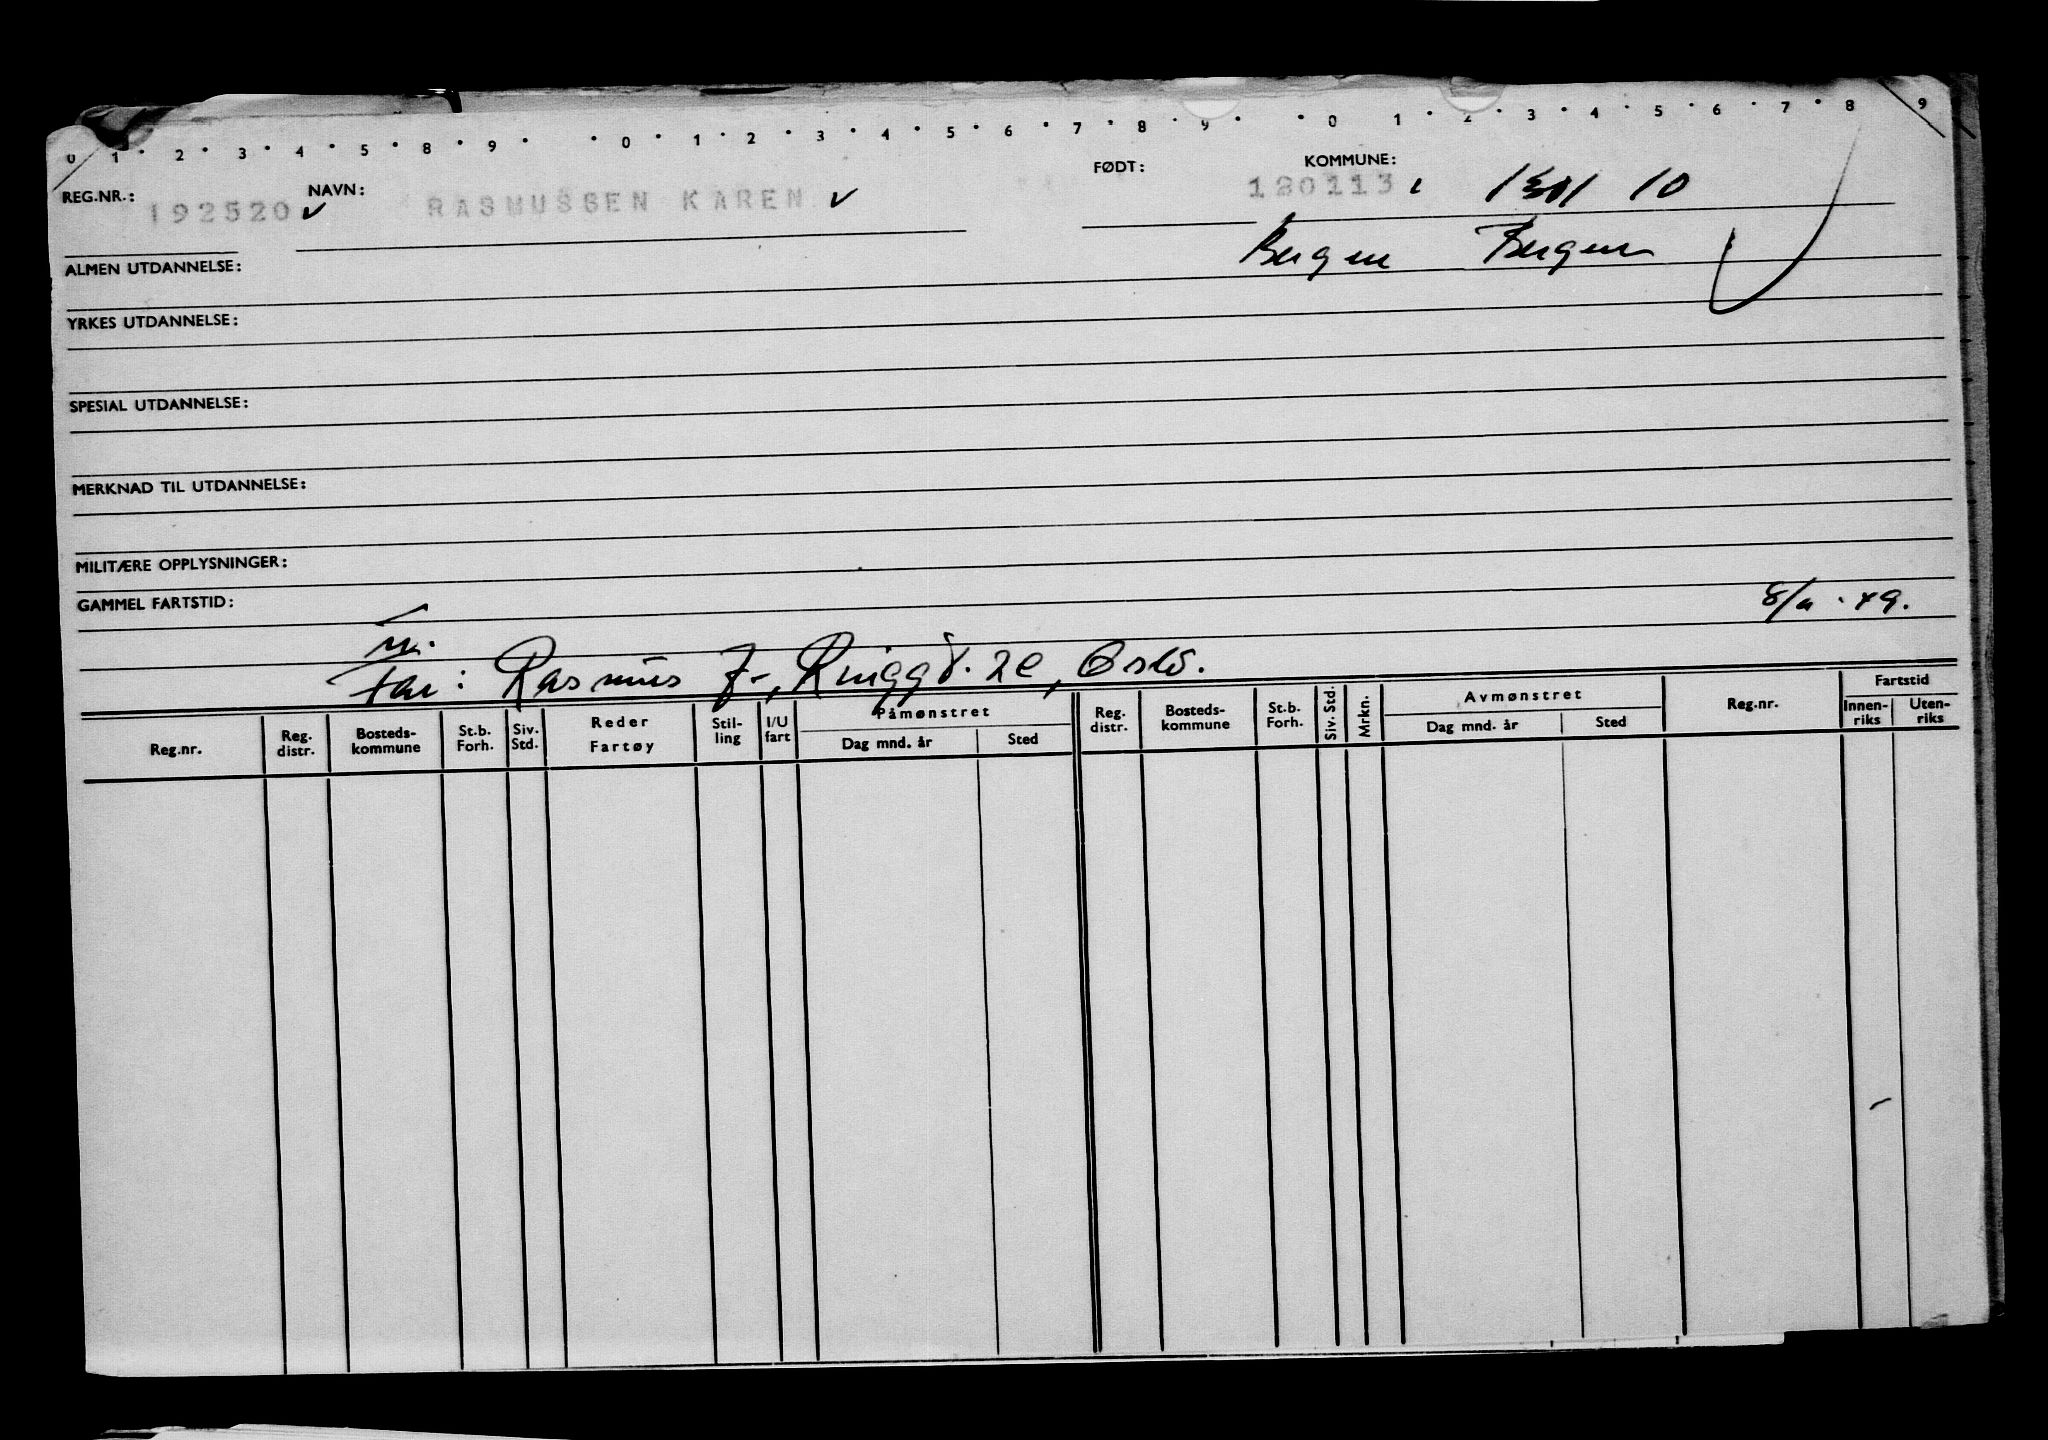 0 1 2 3 4 5 8 9 0 1 2 3 4 5 6 7 8 9 0 1 2 3 4 5 6 7 8 9
REG.NR.: 192520 NAVN: RASMUSSEN KAREN FØDT: 180113 KOMMUNE: 1301 10
Bergen Bergen
ALMEN UTDANNELSE:
YRKES UTDANNELSE:
SPESIAL UTDANNELSE:
MERKNAD TIL UTDANNELSE:
MILITÆRE OPPLYSNINGER:
GAMMEL FARTSTID:
Far: Rasmus J-, Ringgd. 2e, Oslo.
Reg.nr. Reg. distr. Bosteds-kommune St.b. Forh. Siv. Std. Reder Fartøy Stil-ling I/U fart Påmønstret Dag mnd. år Sted Reg. distr. Bosteds-kommune St.b. Forh. Siv. Std. Mrkn. Avmønstret Dag mnd. år Sted Reg.nr. Fartstid Innen-riks Uten-riks